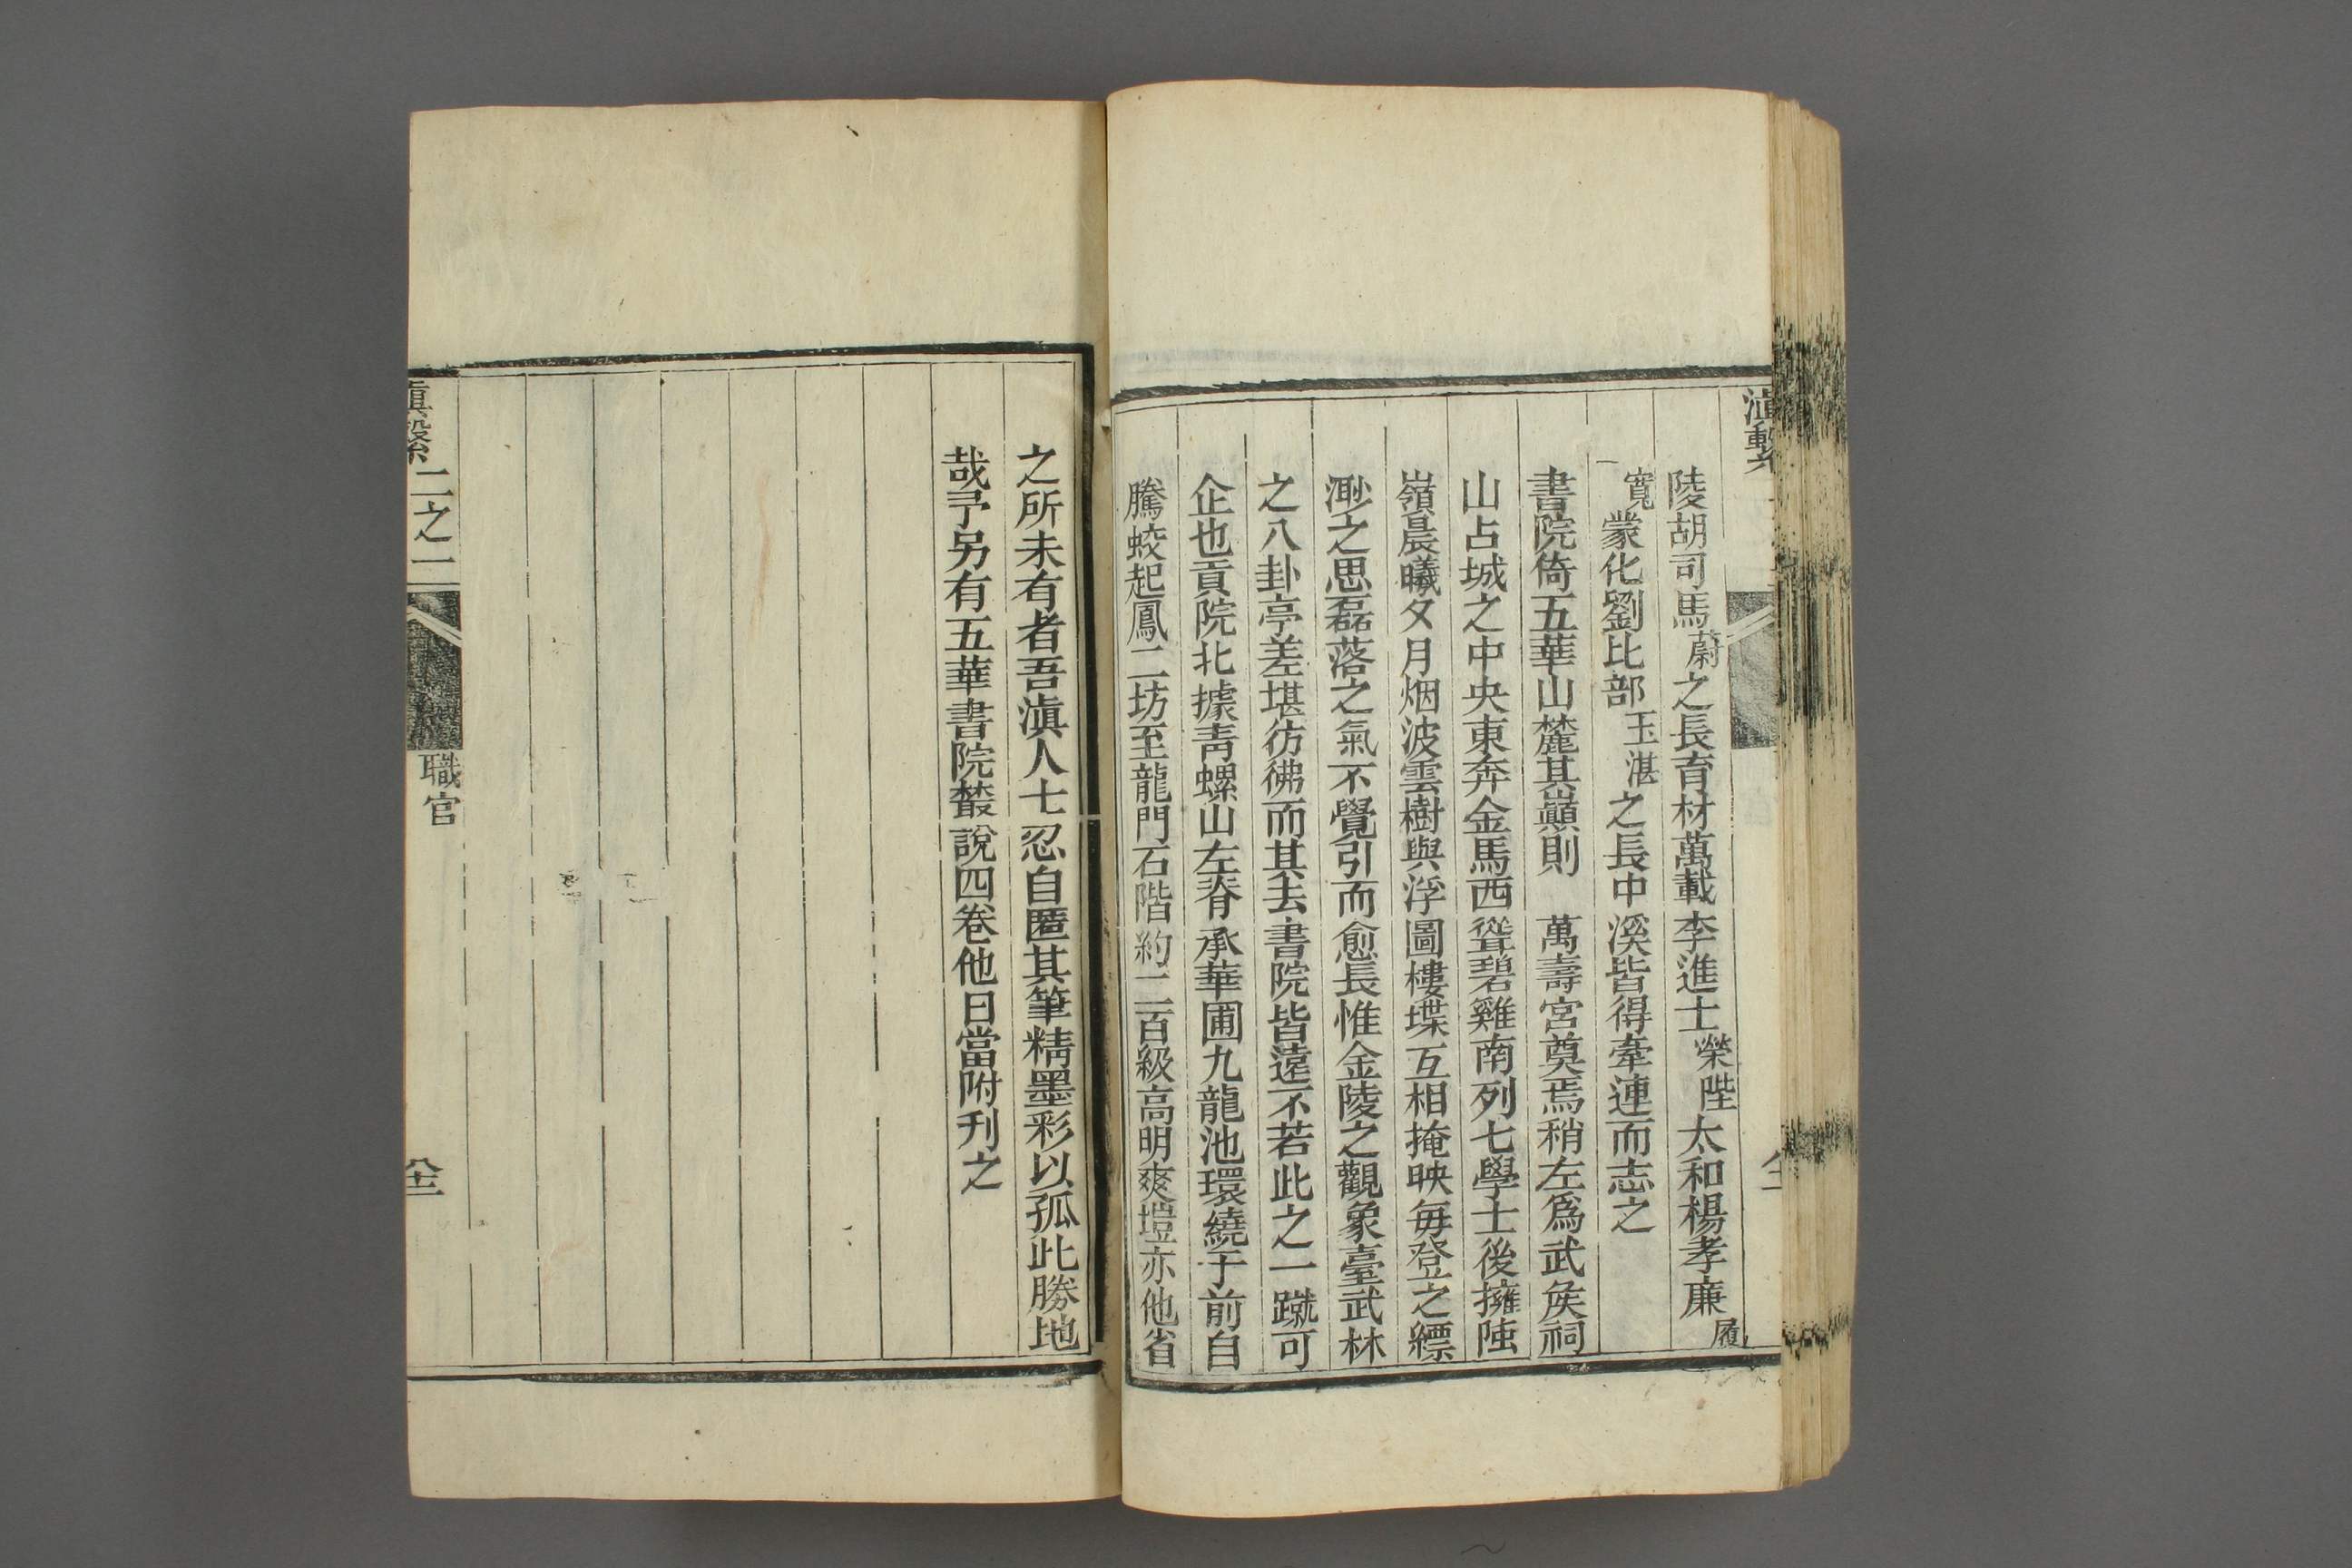 滇繫
陵胡司馬蔚之長育材萬載李進士榮陛太和楊孝廉履
寬蒙化劉比部玉湛之長中溪皆得牽連而志之
書院倚五華山麓其巔則　萬壽宮奠焉稍左爲武矦祠
山占城之中央東奔金馬西聳碧雞南列七學士後擁陡
嶺晨曦夕月烟波雲樹與浮圖樓堞互相掩映每登之縹
渺之思磊落之氣不覺引而愈長惟金陵之觀象臺武林
之八卦亭差堪彷彿而其去書院皆遠不若此之一蹴可
企也貢院北據青螺山左脊承華圃九龍池環繞于前自
騰蛟起鳳二坊至龍門石階約二百級高明爽塏亦他省
之所未有者吾滇人士忍自匿其筆精墨彩以孤此勝地
哉予另有五華書院叢說四卷他日當附刊之
滇繫 二之二 職官